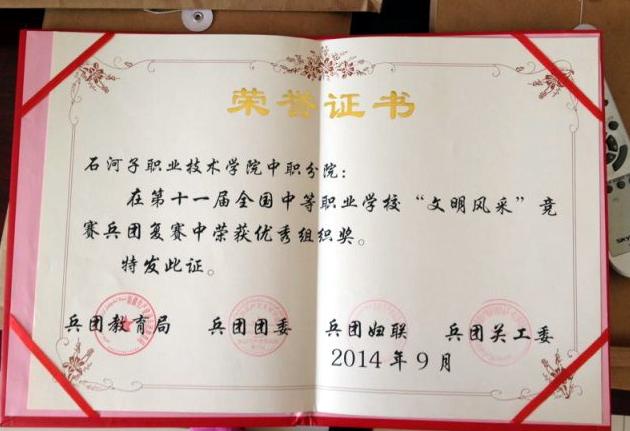 荣誉证书
石河子职业技术学院中职分院：
在第十一届全国中等职业学校“文明风采”竞
赛兵团复赛中荣获优秀组织奖。
特发此证。
兵团教育局 兵团团委 兵团妇联 兵团关工委
2014年9月